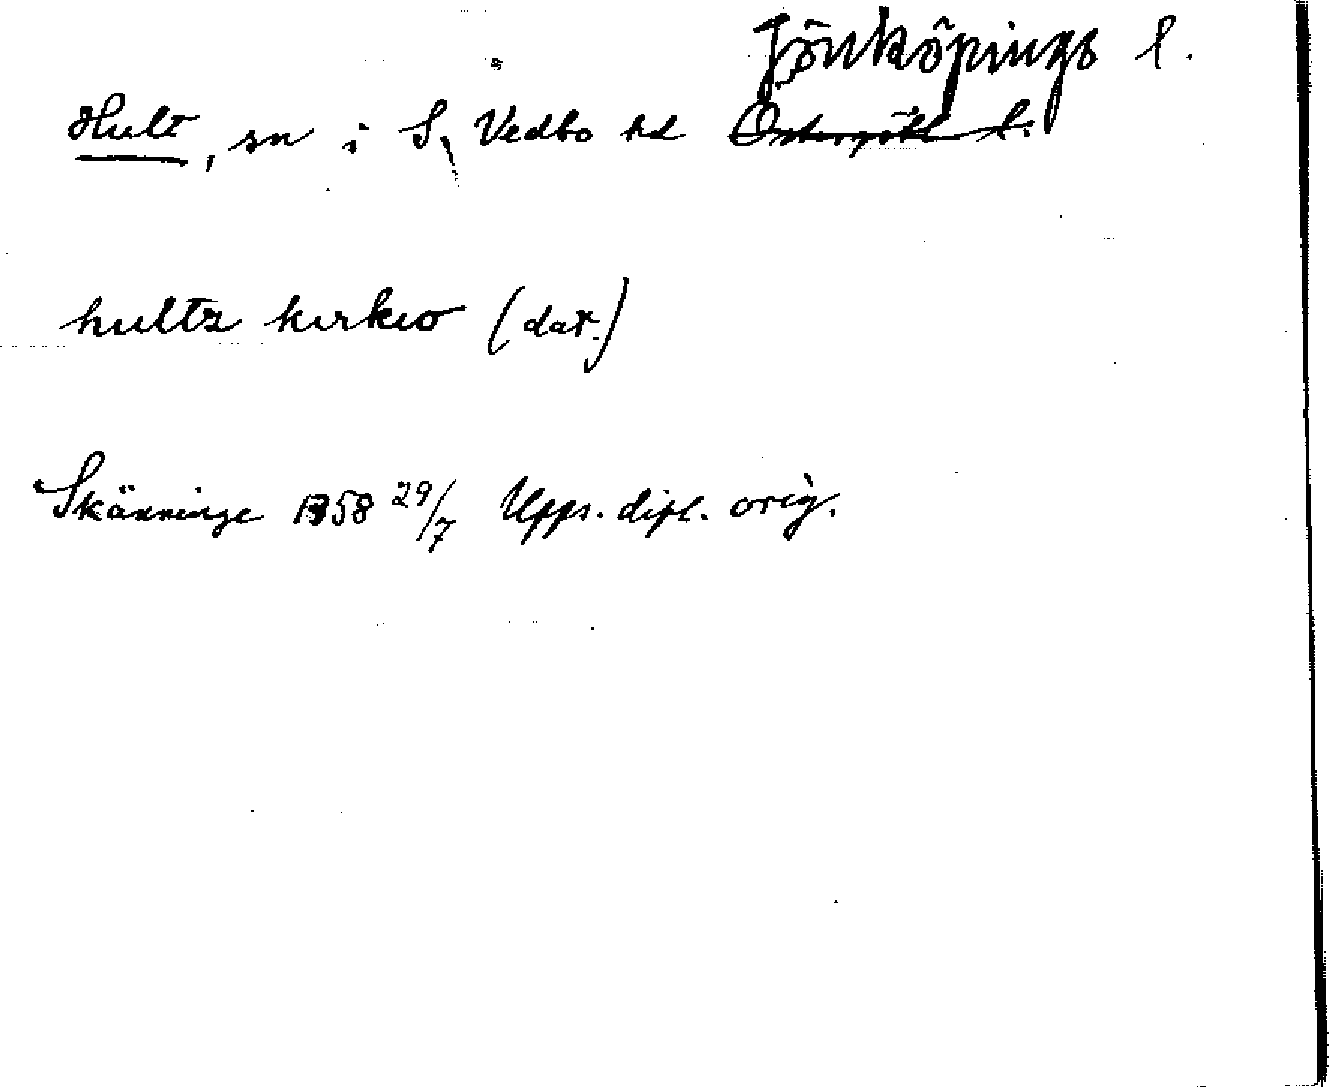 Jönköpings l.
Hult, sn i S. Vedbo hd Östergötl l.
hultz kirkio (dat.)
Skänninge 1358 29/7 Upps. dipl. orig.